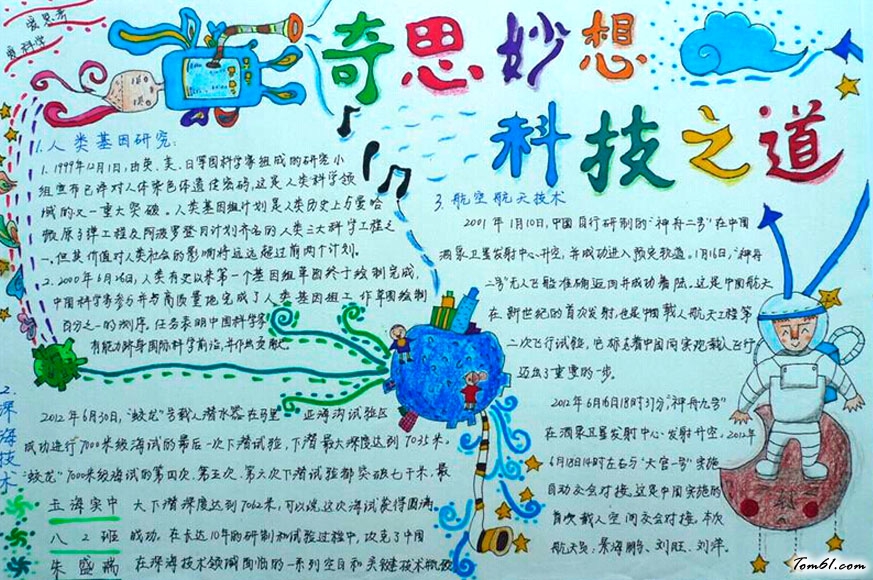 爱思考
爱科学
奇思妙想
科技之道
1.人类基因研究:
1. 1999年12月1日,由英、美、日等国科学家组成的研究小
组宣布已译对人体染色体遗传密码,这是人类科学领
域的又一重大突破。人类基因组计划是人类历史上与曼哈
顿原子弹工程及阿波罗登月计划齐名的人类三大科学工程之
一。但其价值对人类社会的影响将远远超过前两个计划。
2. 2000年6月26日,人类有史以来第一个基因组草图终于绘制完成,
中国科学家参与并高质量地完成了人类基因组工作草图绘制
百分之一的测序。任务表明中国科学家
有能力跻身国际科学前沿,并作出贡献。
2.深海技术
2012年6月30日,“蛟龙”号载人潜水器在马里亚海沟试验区
成功进行7000米级海试的最后一次下潜试验,下潜最大深度达到7035米。
“蛟龙”7000米级海试的第四次、第五次、第六次下潜试验都突破七千米,最
大下潜深度达到7062米,可以说,这次海试获得圆满
成功。在长达10年的研制和试验过程中,攻克了中国
在深海技术领域面临的一系列空白和关键技术瓶颈
五海实中
八2班
朱盛瑞
3.航空航天技术
2001年1月10日,中国自行研制的“神舟二号”在中国
酒泉卫星发射中心升空,并成功进入预定轨道。1月16日,“神舟
二号”无人飞船准确返回并成功着陆。这是中国航天
在新世纪的首次发射,也是中国载人航天工程第
二次飞行试验,它标志着中国向实现载人飞行
迈出了重要的一步。
2012年6月16日18时37分,“神舟九号”
在酒泉卫星发射中心发射升空。2012年
6月18日14时左右与“天宫一号”实施
自动交会对接,这是中国实施的
首次载人空间交会对接。本次
航天员:景海鹏、刘旺、刘洋。
Tom61.com